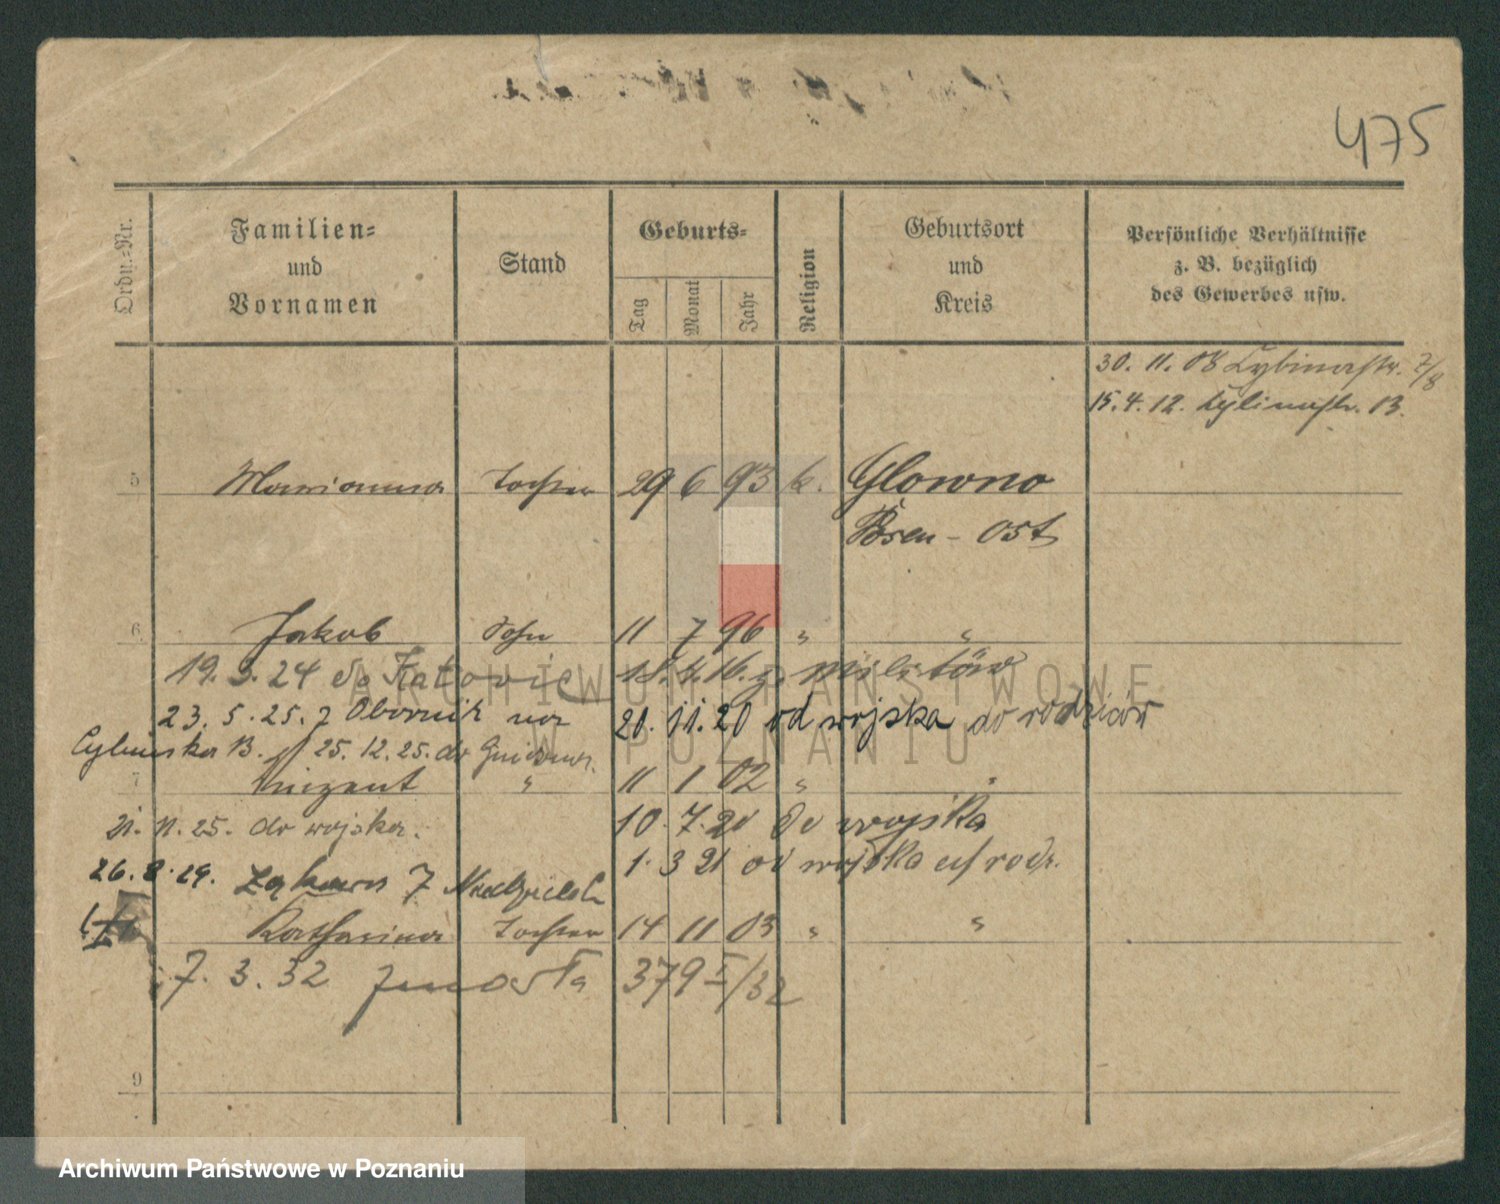 475
Ordn.-Nr.
Familien-
und
Vornamen
Stand
Geburts-
Tag
Monat
Jahr
Religion
Geburtsort
und
Kreis
Persönliche Verhältnisse
z. B. bezüglich
des Gewerbes usw.
30. 11. 08 Cybinastr. 7/8
15. 4. 12. Cybinastr. 13.
5 Marianna Tochter 29 6 93 k. Glowno
Posen - Ost
6 Jakob Sohn 11 7 96 " "
19. 9. 24 do Katowic 18. 4. 16. z. Militär
23. 5. 25. z Obornik na 21. 11. 20 od wojska do rodziców
Cybińska 13. 25. 12. 25. do
7 Vinzent " 11 1 02 " "
21. 11. 25. do wojska. 10. 7. 20 do wojska
26. 8. 29. 1. 3 21 od wojska
Katharina Tochter 14 11 03 " "
7. 3. 32 zmarła 379 I/32
9
ARCHIWUM PAŃSTWOWE
W POZNANIU
Archiwum Państwowe w Poznaniu